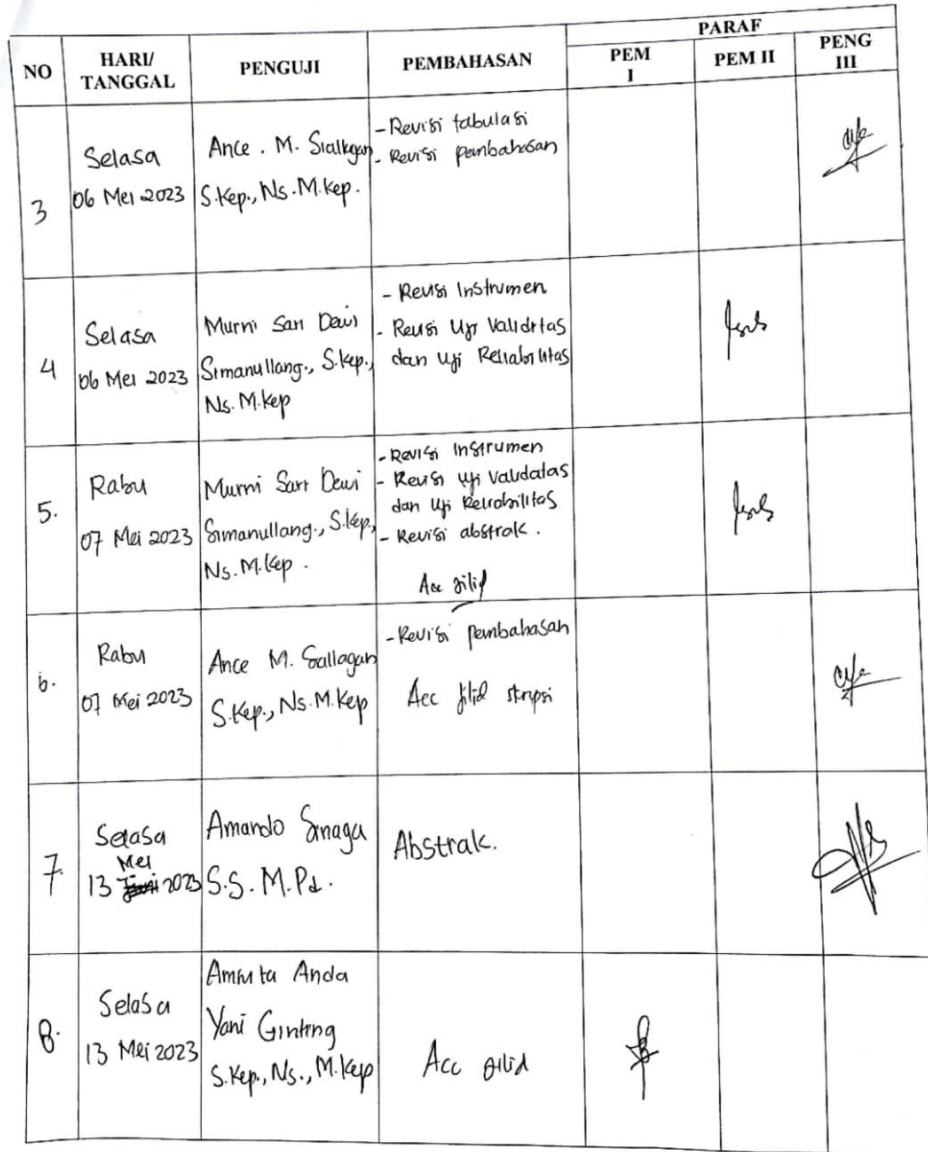 NO
HARI/
TANGGAL
PENGUJI
PEMBAHASAN
PARAF
PEM
I
PEM II
PENG
III
3
Selasa
06 Mei 2023
Ance . M. Siallagan
S.Kep., Ns. M.Kep.
- Revisi tabulasi
- Revisi pembahasan
4
Selasa
06 Mei 2023
Murni Sari Dewi
Simanullang., S.Kep.,
Ns. M.Kep
- Revisi Instrumen
- Revisi Uji Validitas
dan Uji Reliabilitas
5.
Rabu
07 Mei 2023
Murni Sari Dewi
Simanullang., S.Kep.,
Ns. M.Kep.
- Revisi Instrumen
- Revisi Uji Validatas
dan Uji Reliabilitas
- Revisi abstrak.
Acc Jilid
6.
Rabu
07 Mei 2023
Ance M. Siallagan
S.Kep., Ns. M.Kep
- Revisi pembahasan
Acc Jilid skripsi
7.
Selasa
Mei
13 Juni 2023
Amando Sinaga
S.S. M.Pd.
Abstrak.
8.
Selasa
13 Mei 2023
Amnita Anda
Yani Ginting
S.Kep., Ns., M.Kep
Acc Jilid